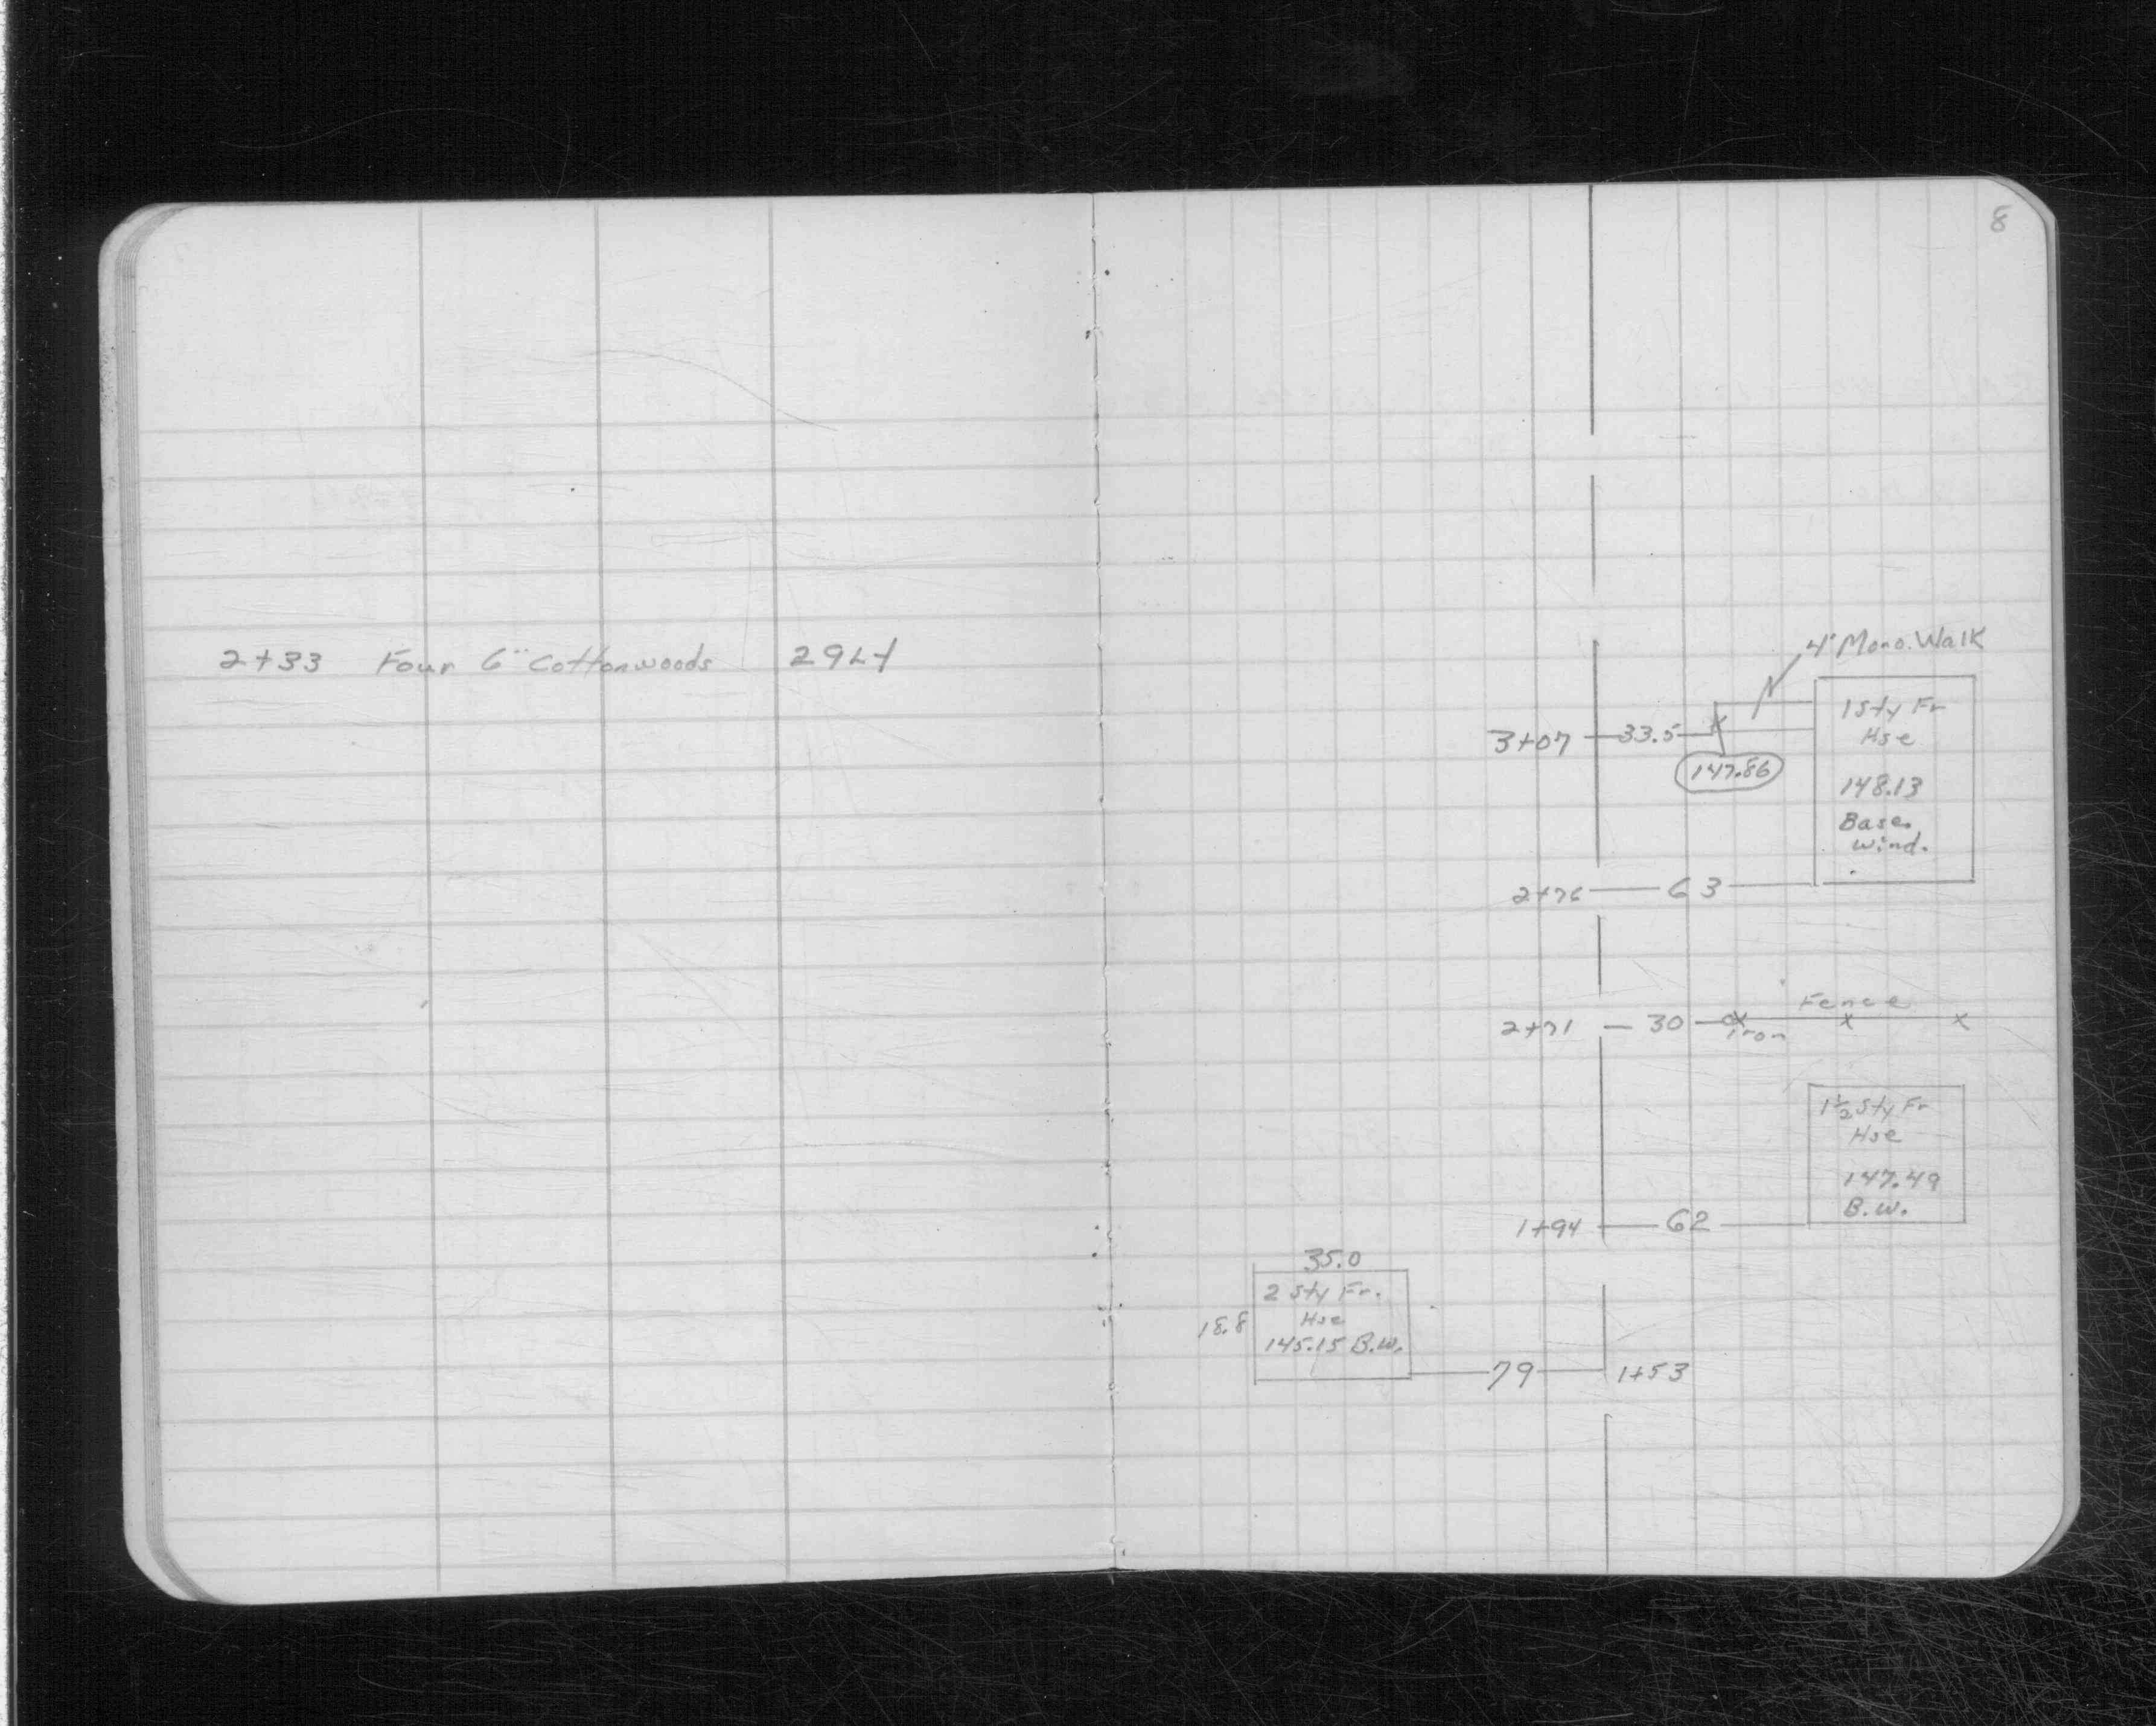 8
2+33 Four 6" Cottonwoods 29 Lt
4' Mono. Walk
3+07 33.5
147.86
1 Sty Fr
Hse
148.13
Base.
Wind.
2+76 63
Fence
2+71 30
Iron
1½ Sty Fr
Hse
147.49
B.W.
1+94 62
35.0
18.8
2 Sty Fr.
Hse
145.15 B.W.
79 1+53